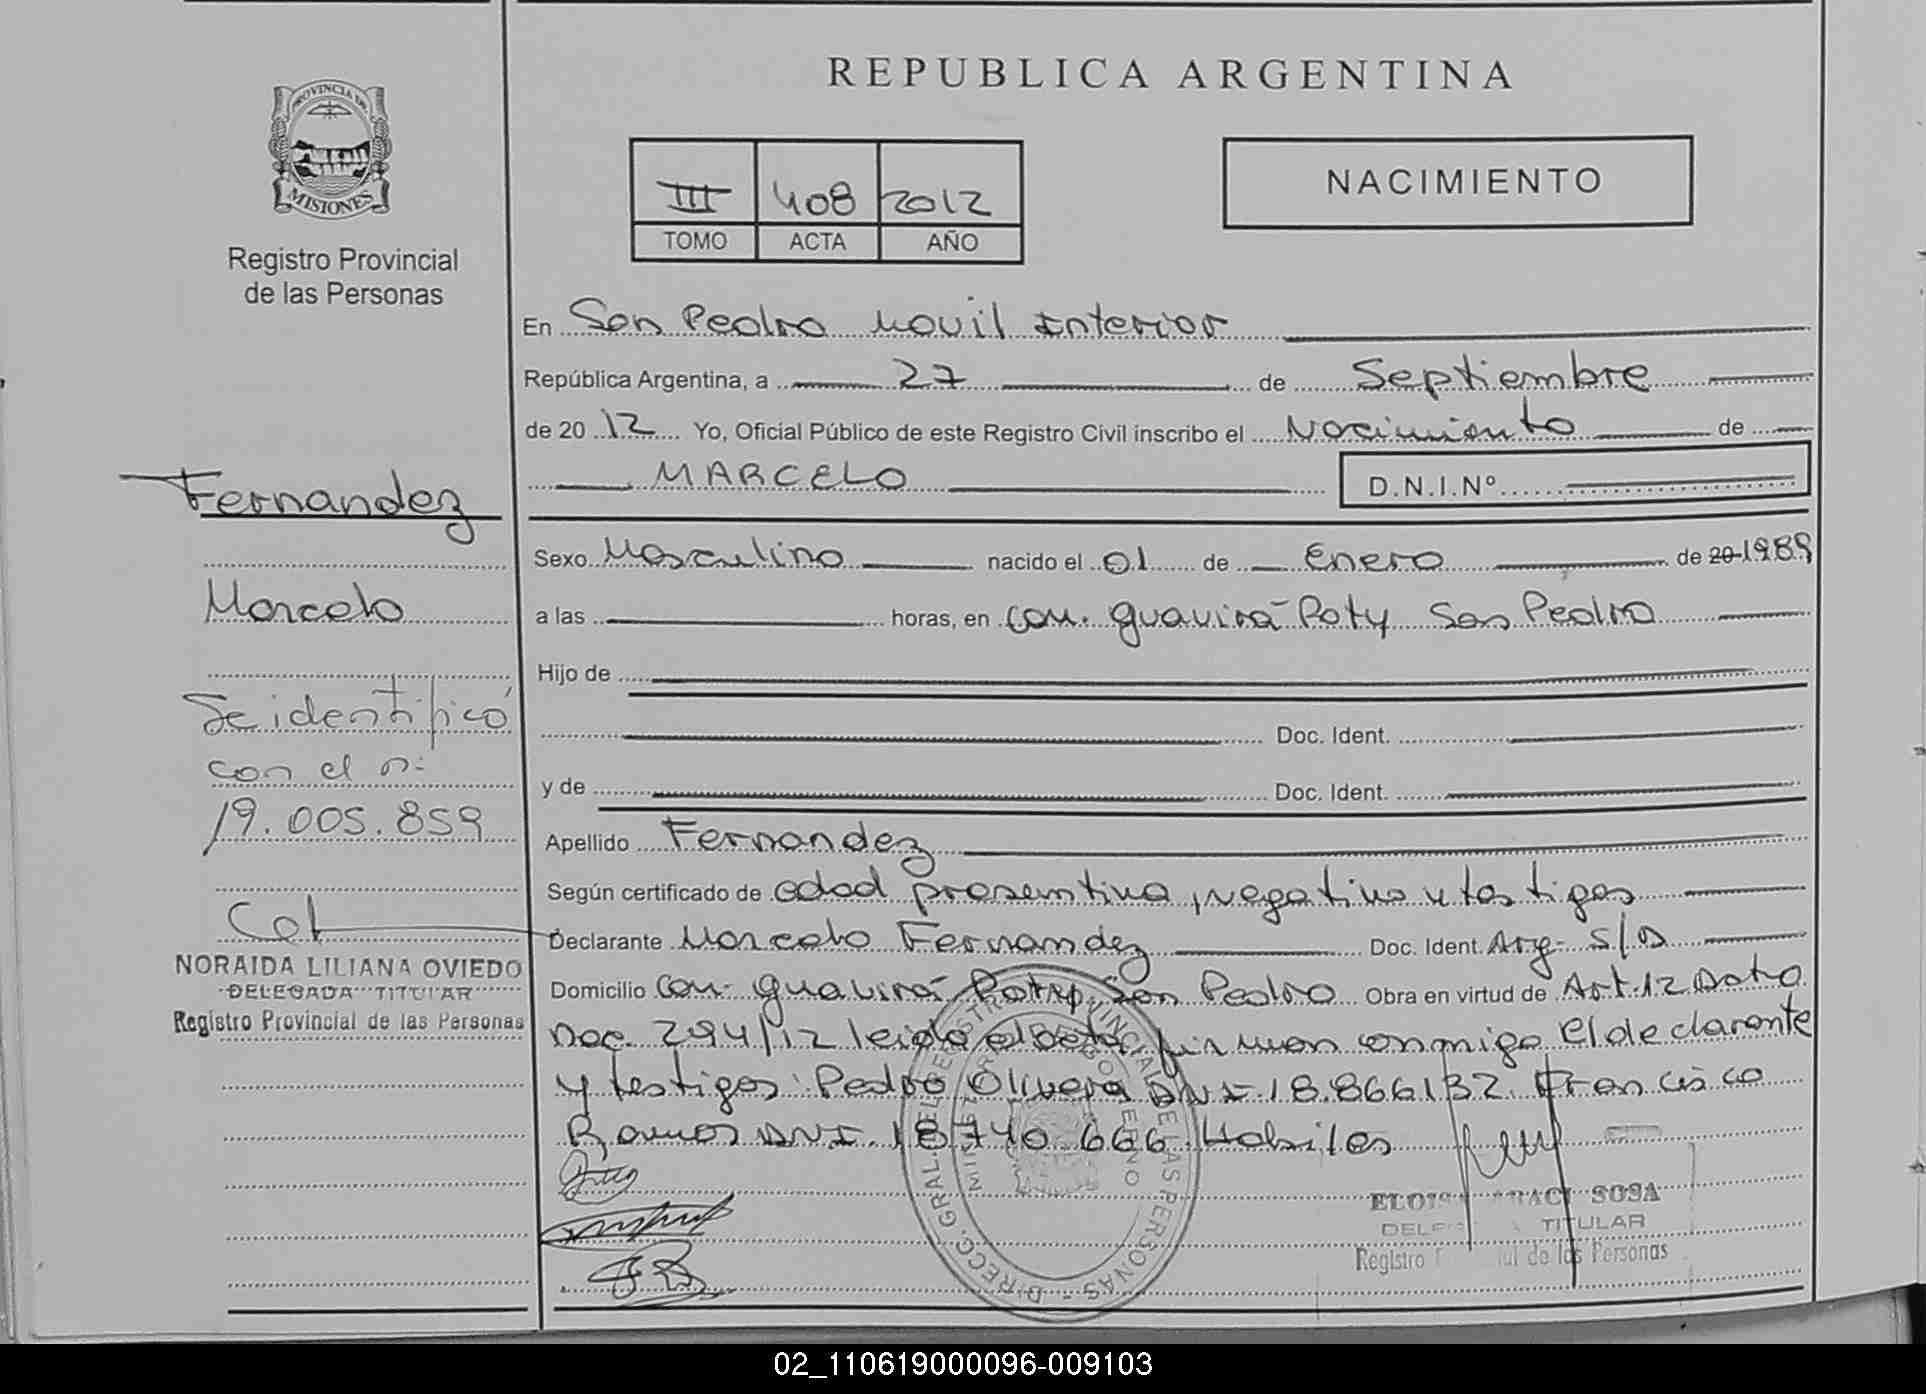 REPUBLICA ARGENTINA
PROVINCIA DE
MISIONES
Registro Provincial
de las Personas
III 408 2012
TOMO ACTA AÑO
NACIMIENTO
En San Pedro Movil Interior
República Argentina, a 27 de Septiembre
de 20 12 Yo, Oficial Público de este Registro Civil inscribo el Nacimiento de
MARCELO D.N.I.Nº
Sexo Masculino nacido el 01 de Enero de 20 1989
a las horas, en Com. Guavirá Poty San Pedro
Hijo de
Doc. Ident.
y de Doc. Ident.
Apellido Fernandez
Según certificado de edad presentiva, negativo y testigos
Declarante Marcelo Fernandez Doc. Ident. Arg. S/D
Domicilio Com. Guavirá Poty, San Pedro Obra en virtud de Art. 12 Dcto
Nac. 294/12 leida el acta, firman conmigo el declarante
y testigos: Pedro Olivera DNI 18.866132. Francisco
Ramos DNI. 18740.666. Habiles
Fernandez
Marcelo
Se identificó
con el nº
19.005.859
NORAIDA LILIANA OVIEDO
DELEGADA TITULAR
Registro Provincial de las Personas
DIRECC. GRAL. DEL REGISTRO PROVINCIAL DE LAS PERSONAS
SOSA
TITULAR
Registro de las Personas
02_110619000096-009103